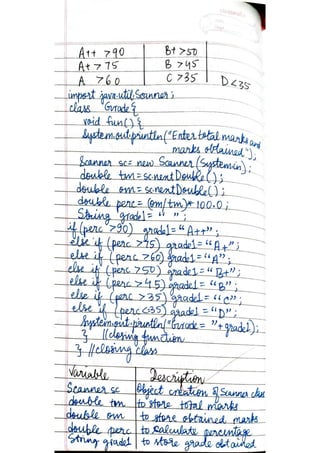 A++ >90 B+ >50
A+ >75 B >45
A >60 C >35 D<35
import java.util.Scanner;
class Grade{
void fun(){
System.out.println("Enter total marks and
marks obtained");
Scanner sc= new Scanner (System.in);
double tm=sc.nextDouble();
double om=sc.nextDouble();
double perc=(om/tm)*100.0;
String grade1= " ";
if(perc >90) grade1="A++";
else if (perc >75) grade1="A+";
else if (perc >60) grade1="A";
else if (perc >50) grade1="B+";
else if (perc >45) grade1="B";
else if (perc >35) grade1="C";
else if (perc<35) grade1="D";
System.out.println("Grade= "+grade1);
} //closing function
} //closing class
Variable Description
Scanner sc Object creation of class
double tm to store total marks
double om to store obtained marks
double perc to calculate percentage
String grade1 to store grade obtained